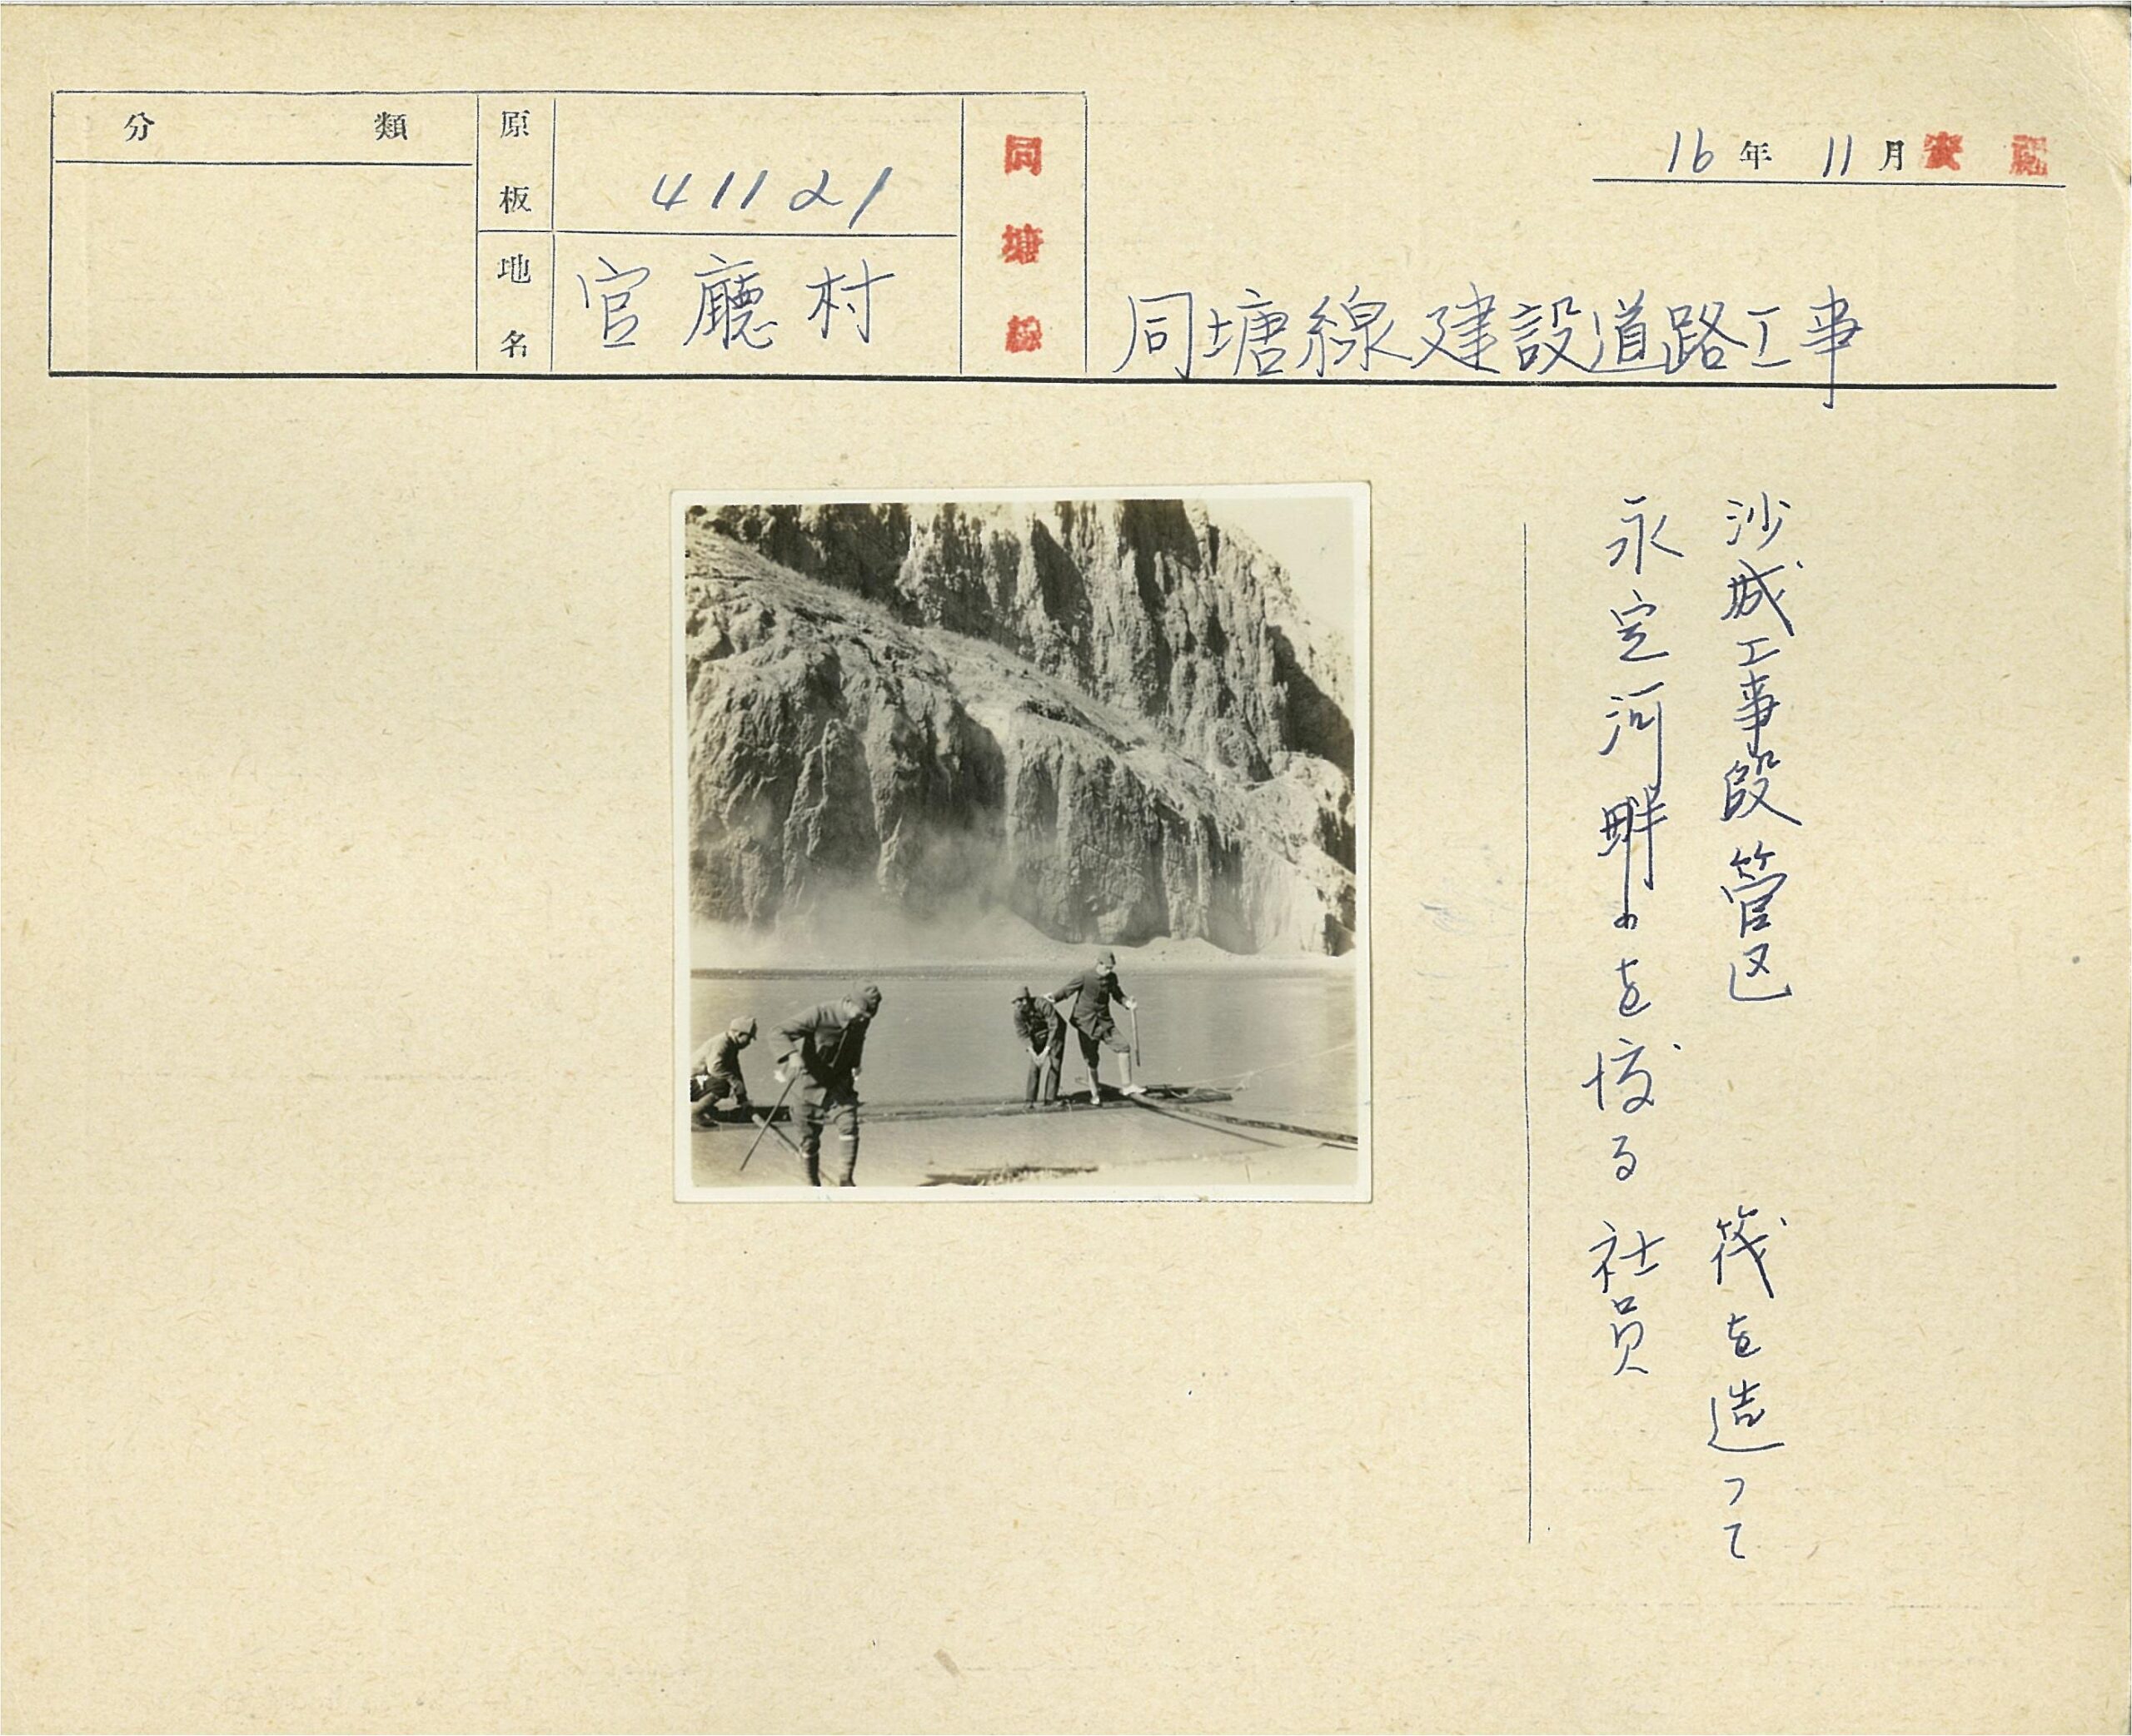 分類
原板
41121
地名
官廳村
同塘線
16年11月
同塘線建設道路工事
沙城工事段管区 筏を造って
永定河畔を渡る社員